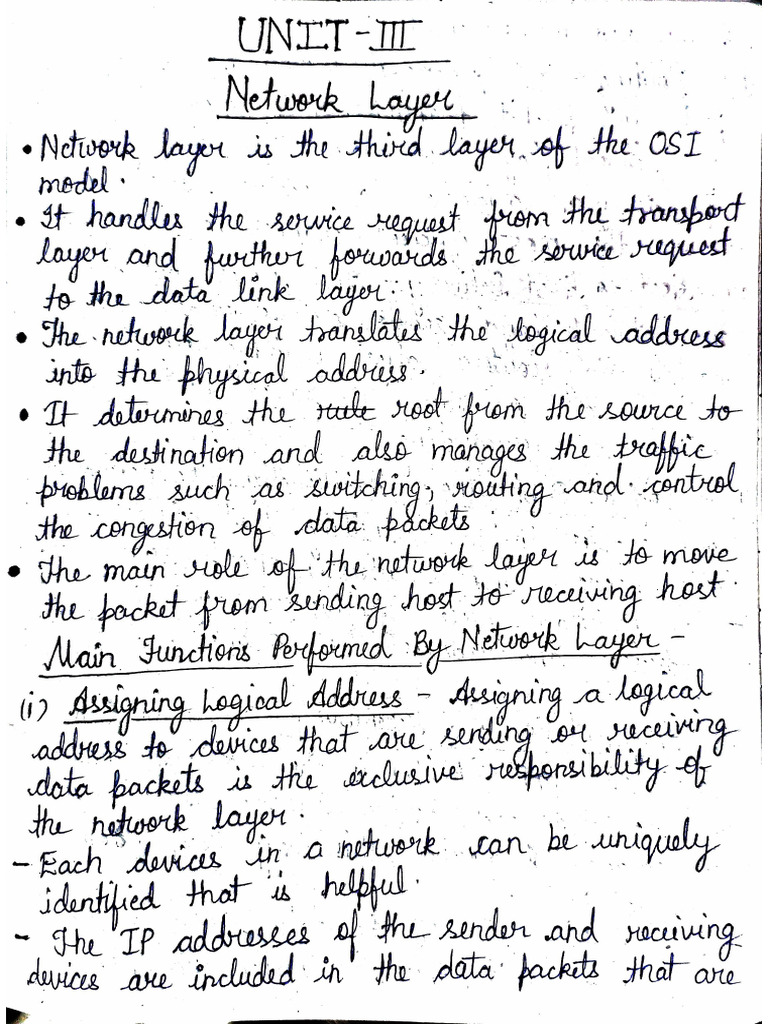 UNIT-III
Network Layer
• Network layer is the third layer of the OSI
model.
• It handles the service request from the transport
layer and further forwards the service request
to the data link layer.
• The network layer translates the logical address
into the physical address.
• It determines the root from the source to
the destination and also manages the traffic
problems such as switching, routing and control
the congestion of data packets.
• The main role of the network layer is to move
the packet from sending host to receiving host.
Main Functions Performed By Network Layer -
(i) Assigning Logical Address - Assigning a logical
address to devices that are sending or receiving
data packets is the exclusive responsibility of
the network layer.
- Each devices in a network can be uniquely
identified that is helpful.
- The IP addresses of the sender and receiving
devices are included in the data packets that are